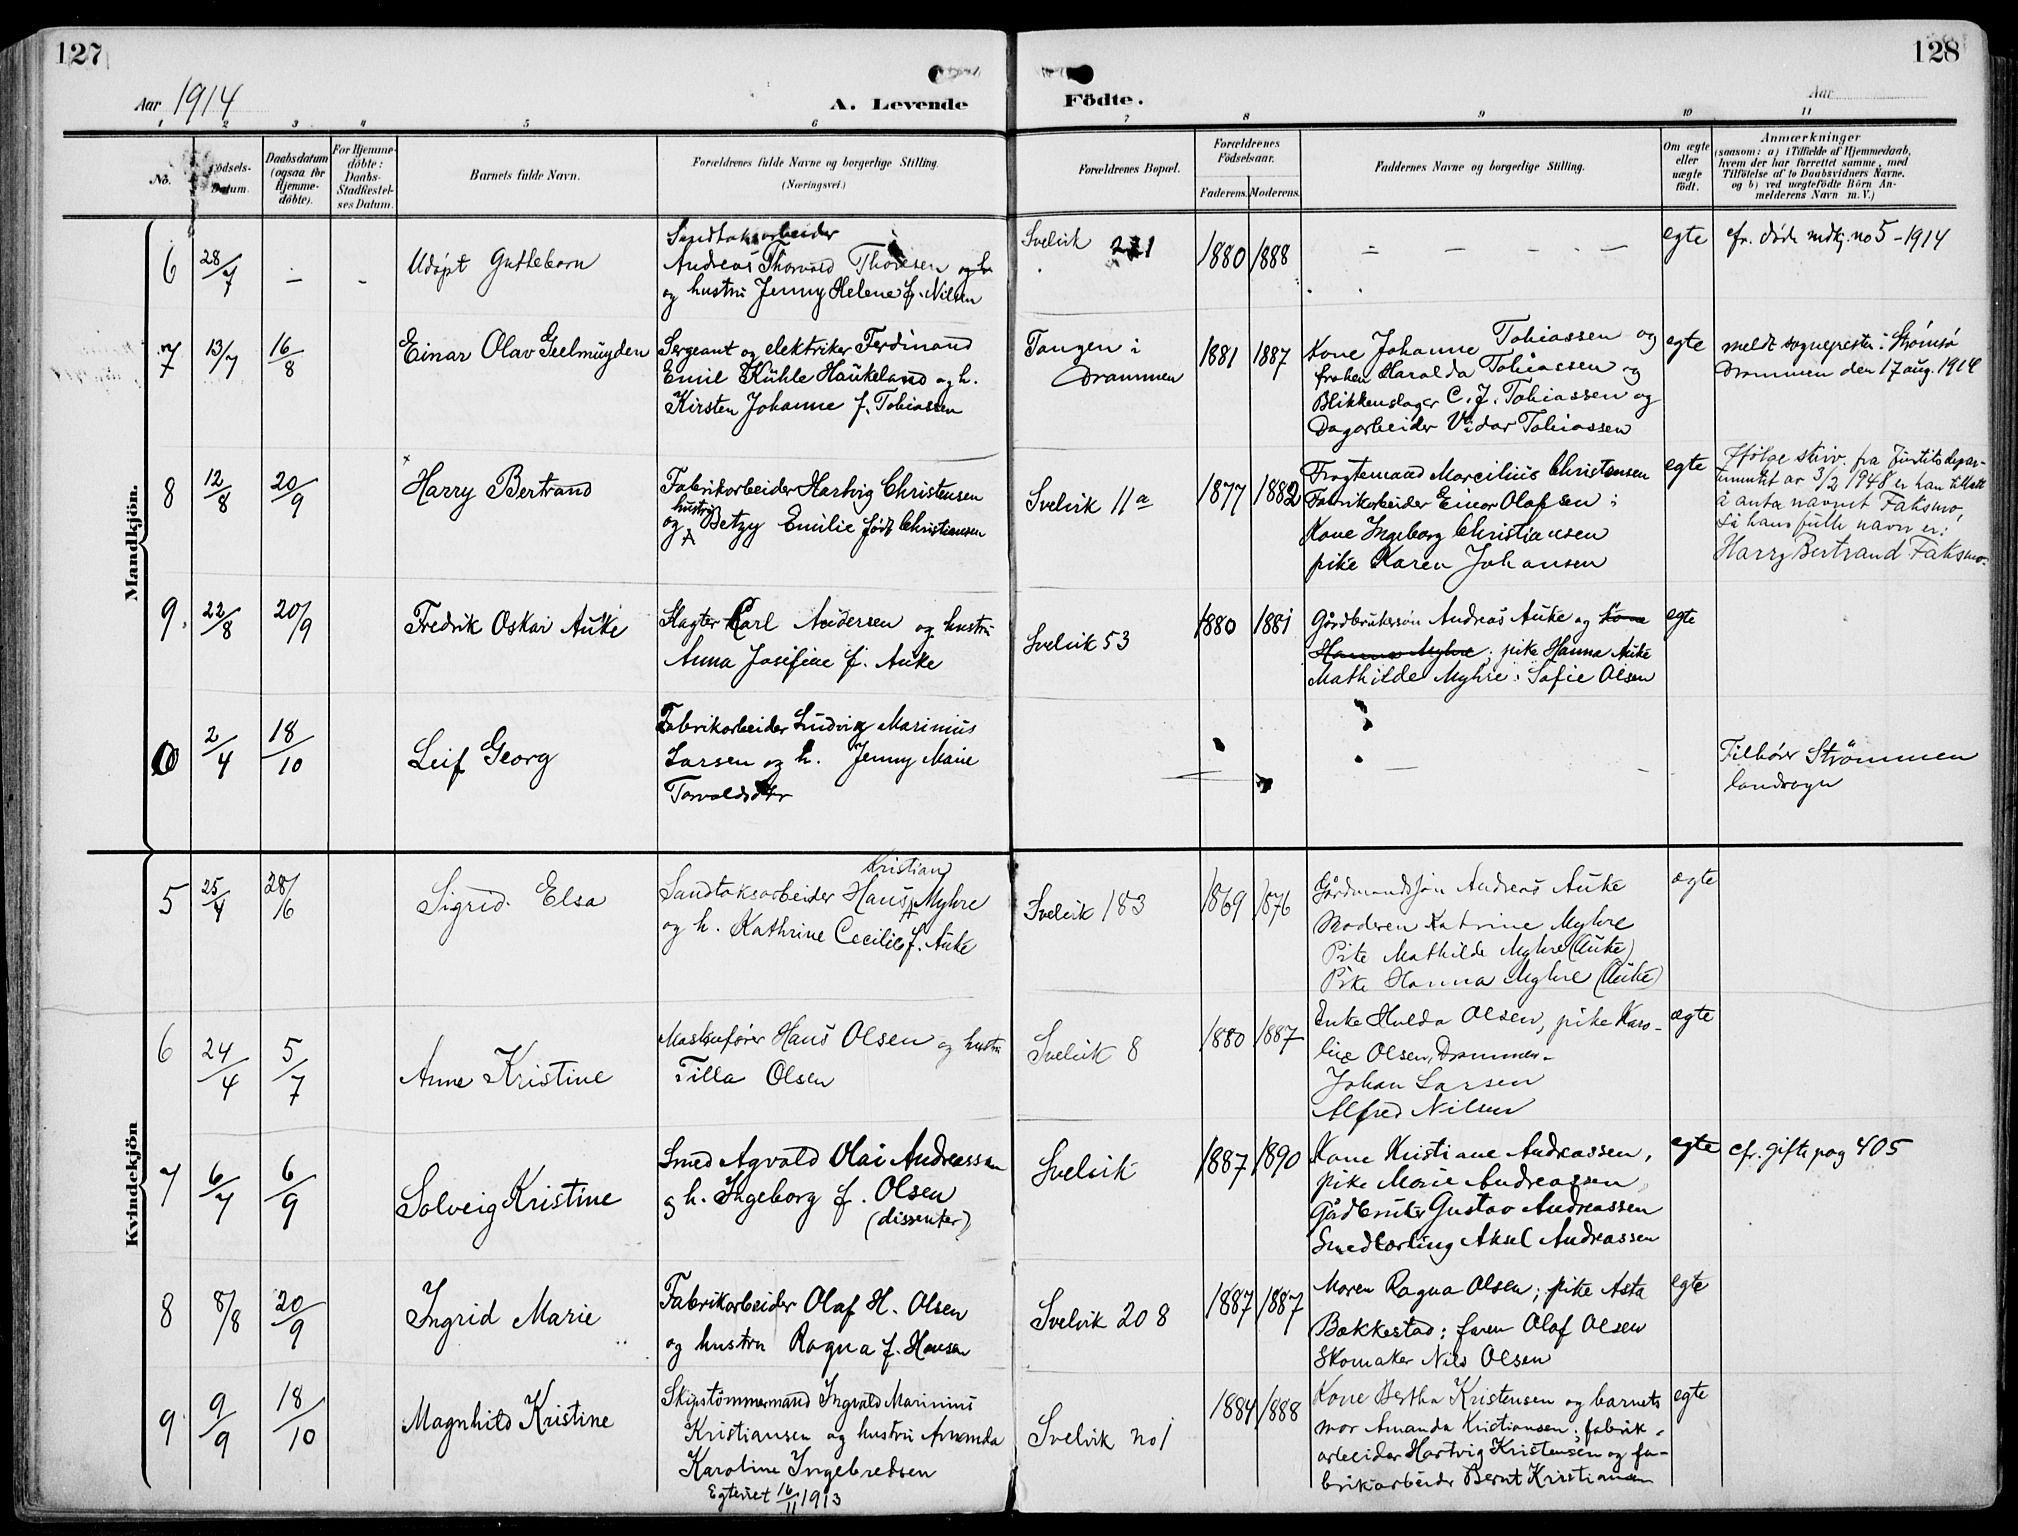 127
128
Aar 1914
A. Levende
Födte.
Aar
1 2 3 4 5 6 7 8 9 10 11
No.
Födsels-
Datum.
Daabsdatum
(ogsaa for
Hjemme-
döbte).
For Hjemme-
döbte:
Daabs-
Stadfæstel-
ses Datum.
Barnets fulde Navn.
Forældrenes fulde Navne og borgerlige Stilling.
(Næringsvei.)
Forældrenes Bopæl.
Forældrenes
Födselsaar.
Faderens. Moderens.
Faddernes Navne og borgerlige Stilling.
Om ægte
eller
uægte
födt.
Anmærkninger
(saasom: a) i Tilfælde af Hjemmedaab,
hvem der har forrettet samme, med
Tilföielse af to Daabsvidners Navne.
og b) ved uægtefödte Börn An-
melderens Navn m. V.)
Mandkjön.
6 28/7 – - Udøpt Guttebarn
Sandtaksarbeider
Andreas Thorvald Thoresen
og hustru Jenny Helene f. Nilsen
Svelvik 271
1880 1888
egte
cfr. døde mdkj. no 5 - 1914
7 13/7 16/8 Einar Olav Geelmuyden
Sergeant og elektriker Ferdinand
Emil Kühle Haukeland og h.
Kirsten Johanne f. Tobiassen
Tangen i
Drammen
1881 1887
Kone Johanne Tobiassen og
frøken Haralda Tobiassen og
Blikkenslager C. J. Tobiassen og
Dagarbeider Vidar Tobiassen
egte
meldt sognepresten i Strømsø
Drammen den 17 aug. 1914
8 12/8 20/9 Harry Bertrand
Fabrikarbeider Hartvig Christensen
hustru
og Betzy Emilie født Christiansen
Svelvik 11a
1877 1882
Fragtemand Marcilius Christensen
Fabrikarbeider Einar Olafsen ;
Kone Ingeborg Christiansen
pike Karen Johansen
egte
Ifølge skriv. fra Justitsdepar-
tementet av 3/2 1948 er han tillatt
å anta navnet Faksmo,
så hans fulle navn er:
Harry Bertrand Faksmo.
9. 22/8 20/9 Fredrik Oskar Auke
Slagter Karl Andersen og hustru
Anna Josefine f. Auke
Svelvik 53
1880 1881
Gårdbrukersøn Andreas Auke og Kone
Hanna Myhre ; pike Hanna Auke
Mathilde Myhre : Sofie Olsen
egte
10 2/4 18/10 Leif Georg
Fabrikarbeider Ludvig Marinius
Larsen og h. Jenny Marie
Torvaldsdtr
Tilhører Strömmen
landsogn
Kvindekjön
5 25/4 28/6 Sigrid Elsa
Kristian
Sandtaksarbeider Hans Myhre
og h. Kathrine Cecilie f. Auke
Svelvik 183
1869 1876
Gårdmandssøn Andreas Auke
Moderen Katrine Myhre
Pike Mathilde Myhre (Auke)
Pike Hanna Myhre (Auke)
ægte
6 24/4 5/7 Anne Kristine
Maskinfører Hans Olsen og hustru
Tilla Olsen
Svelvik 8
1880 1887
Enke Hulda Olsen, pike Karo-
line Olsen, Drammen-
Johan Larsen
Alfred Nilsen
ægte
7 6/7 6/9 Solveig Kristine
Smed Agvald Olai Andreassen
og h. Ingeborg f. Olsen
(dissenter)
Svelvik
1887 1890
Kone Kristiane Andreassen,
pike Marie Andreassen
Gårdbruker Gustav Andreassen
Smedlærling Aksel Andreassen
egte
cfr. gifte pag 405
8 8/8 20/9 Ingrid Marie
Fabrikarbeider Olaf H. Olsen
og hustru Ragna f. Hansen
Svelvik 208
1887 1887
Moren Ragna Olsen; pike Asta
Bakkestad: faren Olaf Olsen
Skomaker Nils Olsen
egte
9. 9/9 18/10 Magnhild Kristine
Skipstømmermand Ingvald Marinius
Kristiansen og hustru Amanda
Karoline Ingebredsen
Egteviet 16/11 1913
Svelvik no 1
1884 1888
Kone Bertha Kristensen og barnets
mor Amanda Kristiansen ; fabrik-
arbeider Hartvig Kristensen og fa-
brikarbeider Bernt Kristiansen
egte